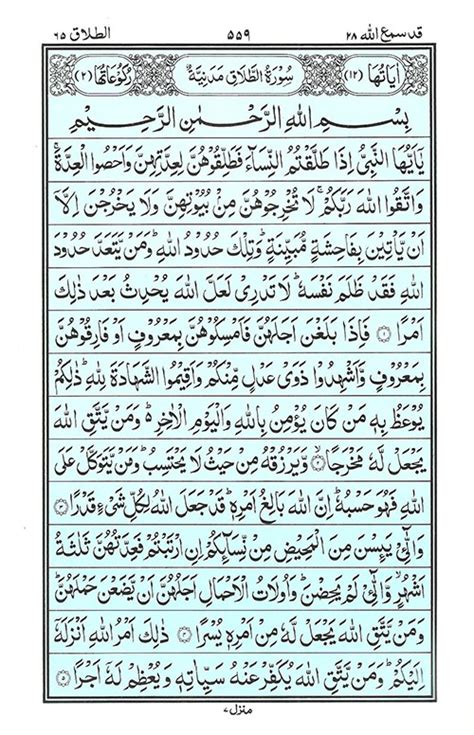 قدسمع الله ۲۸ ۵۵۹ الطلاق ۶۵
اٰیَاتُهَا (۱۲) سُوْرَةُ الطَّلَاقِ مَدَنِیَّةٌ رُکُوْعَاتُهَا (۲)
بِسْمِ اللّٰهِ الرَّحْمٰنِ الرَّحِیْمِ
یٰۤاَیُّهَا النَّبِیُّ اِذَا طَلَّقْتُمُ النِّسَآءَ فَطَلِّقُوْهُنَّ لِعِدَّتِهِنَّ وَاَحْصُوا الْعِدَّةَ ۚ
وَاتَّقُوا اللّٰهَ رَبَّکُمْ ۚ لَا تُخْرِجُوْهُنَّ مِنْۢ بُیُوْتِهِنَّ وَلَا یَخْرُجْنَ اِلَّاۤ
اَنْ یَّاْتِیْنَ بِفَاحِشَةٍ مُّبَیِّنَةٍ ؕ وَتِلْکَ حُدُوْدُ اللّٰهِ ؕ وَمَنْ یَّتَعَدَّ حُدُوْدَ
اللّٰهِ فَقَدْ ظَلَمَ نَفْسَهٗ ؕ لَا تَدْرِیْ لَعَلَّ اللّٰهَ یُحْدِثُ بَعْدَ ذٰلِکَ
اَمْرًا ۝۱ فَاِذَا بَلَغْنَ اَجَلَهُنَّ فَاَمْسِکُوْهُنَّ بِمَعْرُوْفٍ اَوْ فَارِقُوْهُنَّ
بِمَعْرُوْفٍ وَّاَشْهِدُوْا ذَوَیْ عَدْلٍ مِّنْکُمْ وَاَقِیْمُوا الشَّهَادَةَ لِلّٰهِ ؕ ذٰلِکُمْ
یُوْعَظُ بِهٖ مَنْ کَانَ یُؤْمِنُ بِاللّٰهِ وَالْیَوْمِ الْاٰخِرِ ؕ وَمَنْ یَّتَّقِ اللّٰهَ
یَجْعَلْ لَّهٗ مَخْرَجًا ۝۲ وَّیَرْزُقْهُ مِنْ حَیْثُ لَا یَحْتَسِبُ ؕ وَمَنْ یَّتَوَکَّلْ عَلَی
اللّٰهِ فَهُوَ حَسْبُهٗ ؕ اِنَّ اللّٰهَ بَالِغُ اَمْرِهٖ ؕ قَدْ جَعَلَ اللّٰهُ لِکُلِّ شَیْءٍ قَدْرًا ۝۳
وَالّٰٓـِٔیْ یَئِسْنَ مِنَ الْمَحِیْضِ مِنْ نِّسَآئِکُمْ اِنِ ارْتَبْتُمْ فَعِدَّتُهُنَّ ثَلٰثَةُ
اَشْهُرٍ ۙ وَّالّٰٓـِٔیْ لَمْ یَحِضْنَ ؕ وَاُولَاتُ الْاَحْمَالِ اَجَلُهُنَّ اَنْ یَّضَعْنَ حَمْلَهُنَّ ؕ
وَمَنْ یَّتَّقِ اللّٰهَ یَجْعَلْ لَّهٗ مِنْ اَمْرِهٖ یُسْرًا ۝۴ ذٰلِکَ اَمْرُ اللّٰهِ اَنْزَلَهٗۤ
اِلَیْکُمْ ؕ وَمَنْ یَّتَّقِ اللّٰهَ یُکَفِّرْ عَنْهُ سَیِّاٰتِهٖ وَیُعْظِمْ لَهٗۤ اَجْرًا ۝۵
منزل ۷